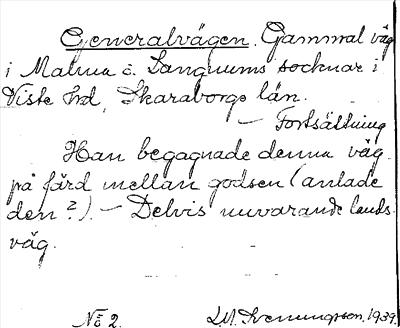 Generalvägen. Gammal väg
i Malma o. Långnums socknar i
Viste hd, Skaraborgs län.
— Fortsättning
Han begagnade denna väg
på färd mellan godsen (anlade
den?). — Delvis nuvarande lands-
väg.
No 2.
1939.